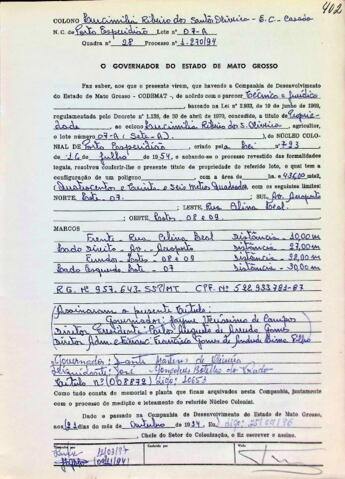 402
COLONO Lucimilia Ribeiro dos Santos Oliveira - E.C. - Casada
N. C. de Porto Esperidião Lote nº 07-A
Quadra nº 28 Processo 1.270/94
O GOVERNADOR DO ESTADO DE MATO GROSSO
Faz saber, aos que a presente virem, que havendo a Companhia de Desenvolvimento
do Estado de Mato Grosso - CODEMAT -, de acordo com o parecer Técnico e Jurídico
, baseado na Lei nº 2.903, de 10 de junho de 1969,
regulamentada pelo Decreto nº 1.138, de 30 de abril de 1970, concedido, a título de Proprie-
dade, ao colono Lucimilia Ribeiro dos S. Oliveira, agricultor,
o lote número 07-A (Sete-A) do NÚCLEO COLO-
NIAL DE Porto Esperidião, criado pela Lei nº 723
de 16 de julho de 1954, e achando-se o processo revestido das formalidades
legais, resolveu conferir-lhe o presente título de propriedade do referido lote, o qual tem a
configuração de um polígono com a área de 436,00 mts²
Quatrocentos e Trinta e Seis Metros Quadrados, com os seguintes limites:
NORTE Lote: 07. SUL Av. Aeroporto
LESTE Rua Celina Leal.
OESTE, Lotes 08 e 09.
MARCOS
Frente - Rua Celina Leal Distância - 10,00m
Lado Direito - Av. Aeroporto Distância - 27,00m
Fundos - Lotes - 08 e 09. Distância - 22,00m
Lado Esquerdo - Lote - 07 Distância - 30,00m
R.G. Nº 957.643-SSP/MT C.P.F. Nº 522.933.781-87
Assinaram o presente título:
Governador: Jayme Veríssimo de Campos
Diretor Presidente: Carlos Augusto de Arruda Gomes
Diretor Adm. e Financ: Francisco Gomes de Andrade Lima Filho
Governador: Dante Martins de Oliveira
Liquidante: José Gonçalves Botelho do Prado
Título nº 002872) digo: 10653
Como tudo consta do memorial e planta que ficam arquivados nesta Companhia, juntamente
com o processo de medição e loteamento do referido Núcleo Colonial.
Dado e passado na Companhia de Desenvolvimento do Estado de Mato Grosso,
aos dias do mês de Outubro de 1994. Eu,
Chefe do Setor de Colonização, o fiz escrever e assino.
VISTO